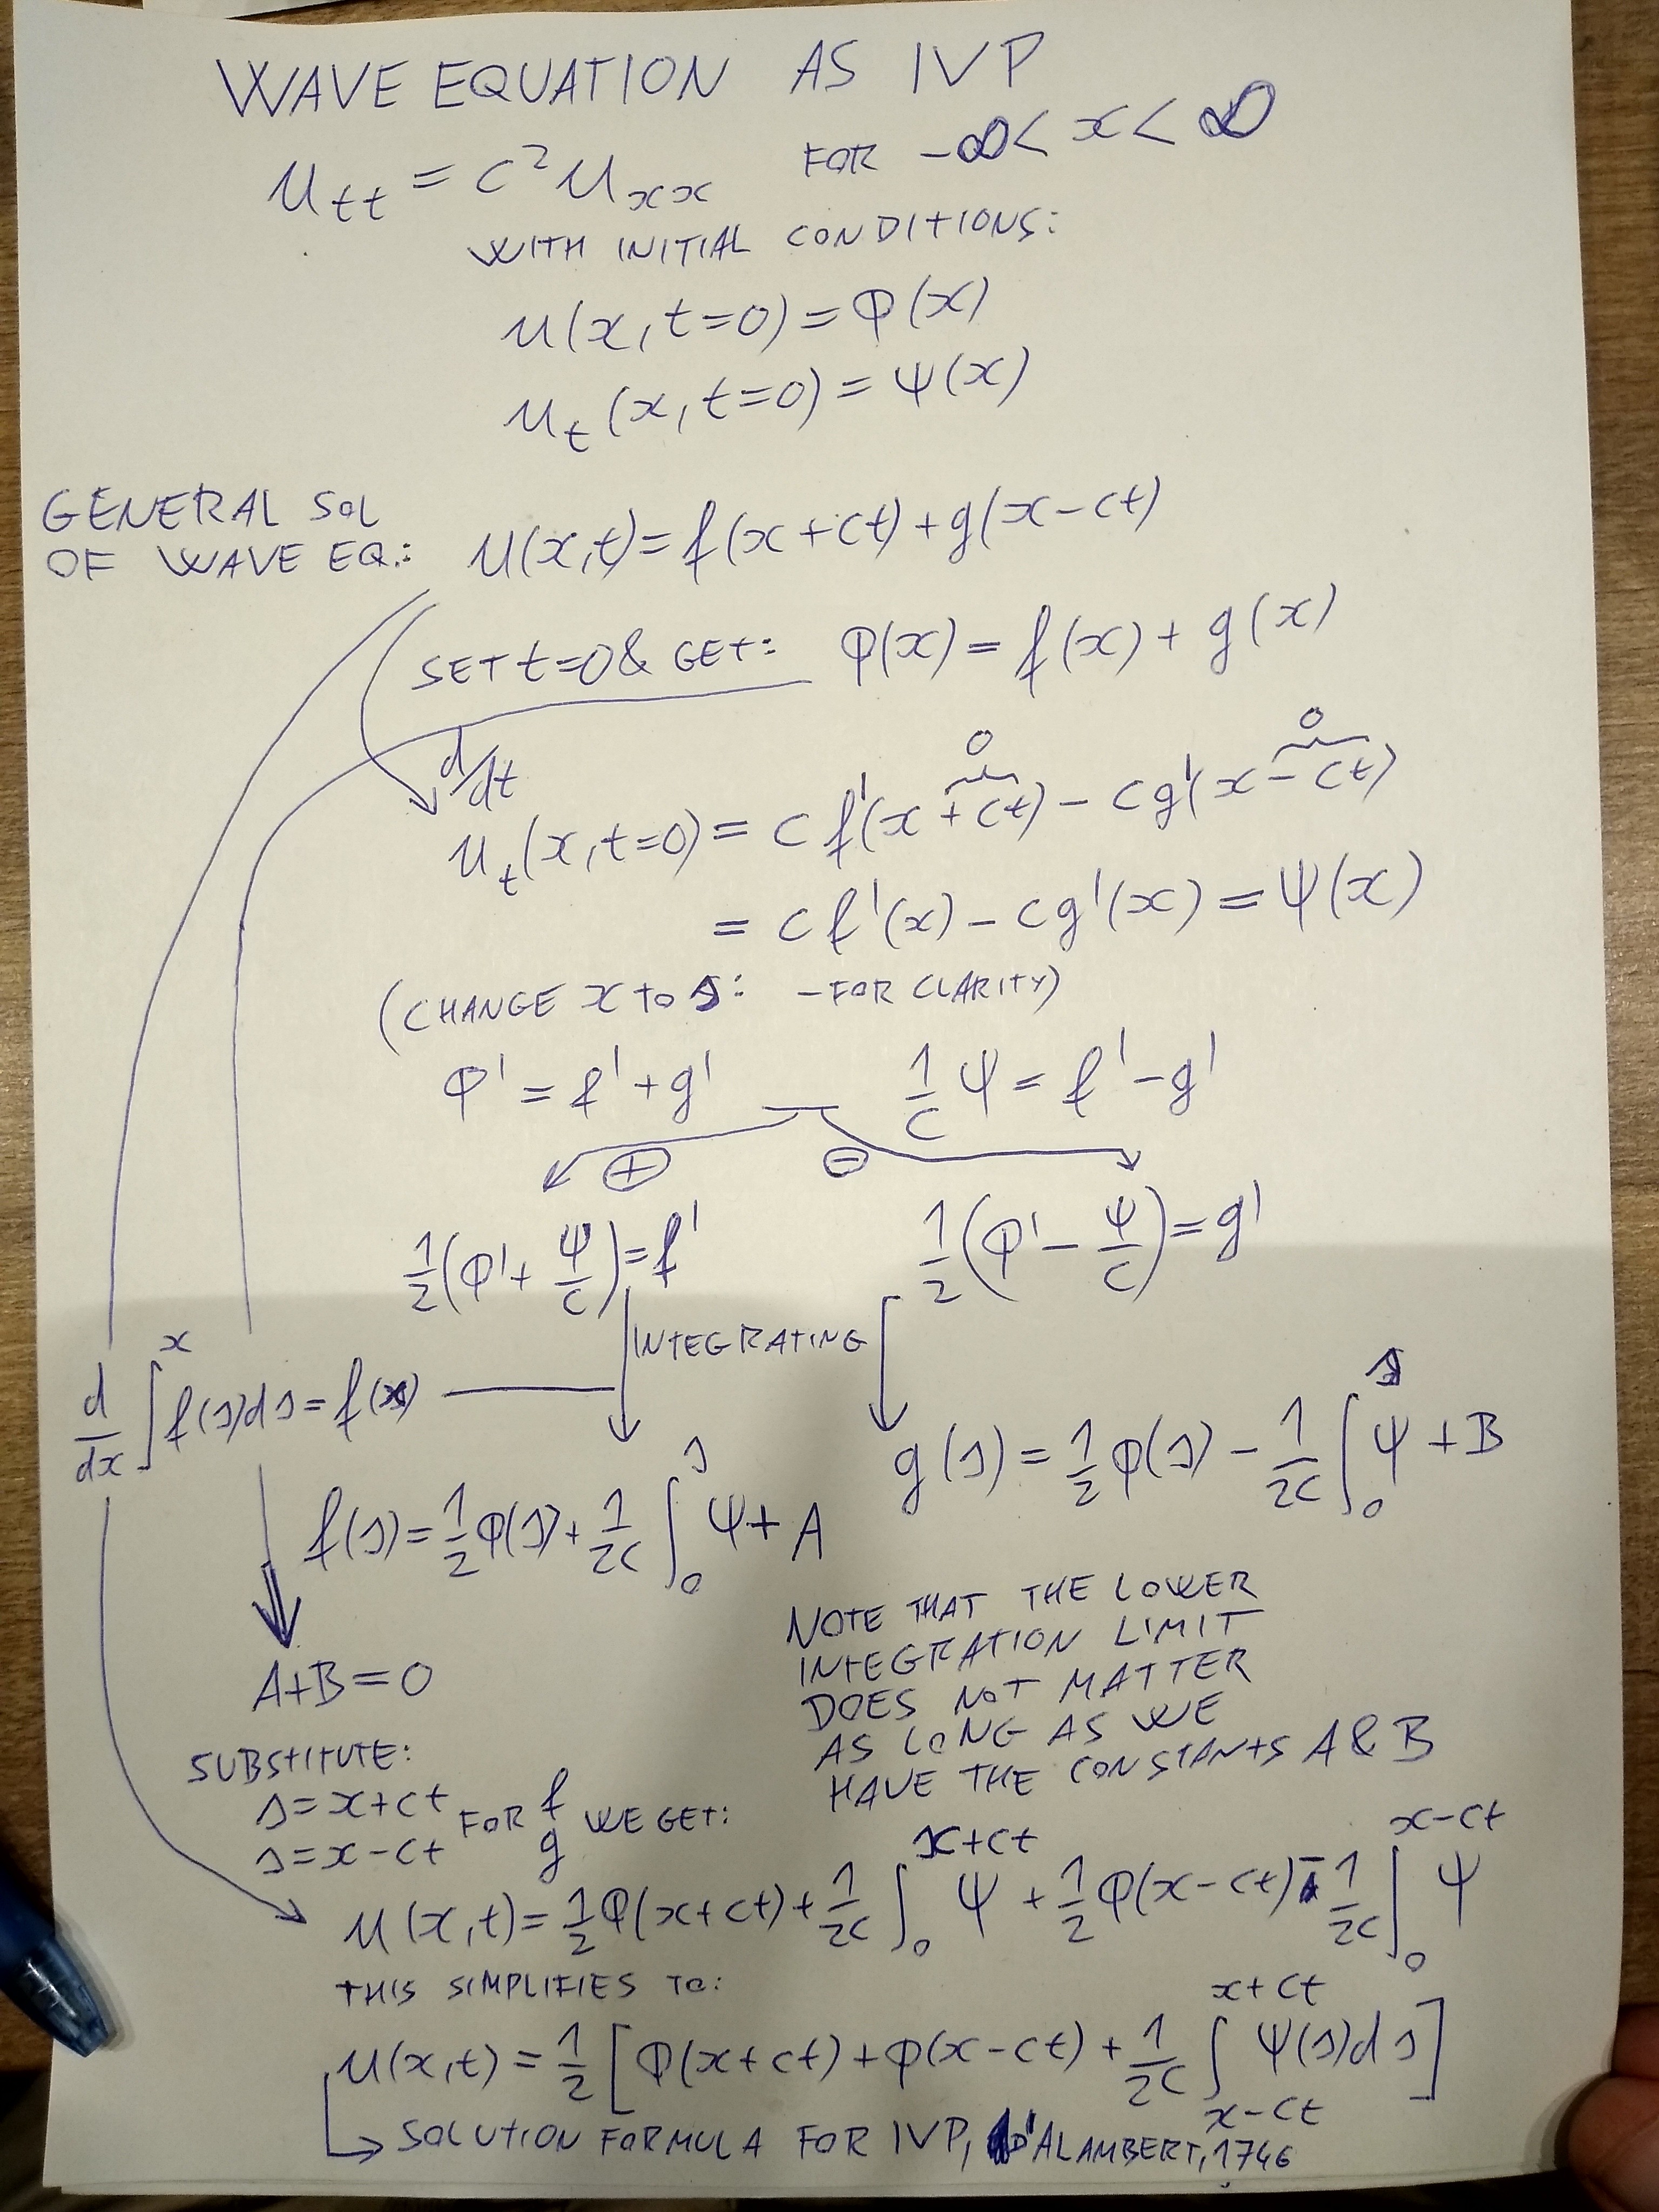 WAVE EQUATION AS IVP
u_tt = c² u_xx FOR -∞ < x < ∞
WITH INITIAL CONDITIONS:
u(x, t=0) = φ(x)
u_t(x, t=0) = ψ(x)
GENERAL SOL
OF WAVE EQ.: u(x,t) = f(x+ct) + g(x-ct)
SET t=0 & GET: φ(x) = f(x) + g(x)
d/dt
0 0
u_t(x, t=0) = c f'(x+ct) - c g'(x-ct)
= c f'(x) - c g'(x) = ψ(x)
(CHANGE x to s: - FOR CLARITY)
φ' = f' + g' 1/c ψ = f' - g'
⊕ ⊖
1/2 (φ' + ψ/c) = f' 1/2 (φ' - ψ/c) = g'
INTEGRATING
d/dx ∫^x f(s)ds = f(x)
g(s) = 1/2 φ(s) - 1/2c ∫_0^s ψ + B
f(s) = 1/2 φ(s) + 1/2c ∫_0^s ψ + A
NOTE THAT THE LOWER
INTEGRATION LIMIT
DOES NOT MATTER
AS LONG AS WE
HAVE THE CONSTANTS A & B
A+B=0
SUBSTITUTE:
s = x+ct FOR f WE GET:
s = x-ct g
u(x,t) = 1/2 φ(x+ct) + 1/2c ∫_0^{x+ct} ψ + 1/2 φ(x-ct) - 1/2c ∫_0^{x-ct} ψ
THIS SIMPLIFIES TO:
u(x,t) = 1/2 [φ(x+ct) + φ(x-ct) + 1/2c ∫_{x-ct}^{x+ct} ψ(s)ds]
SOLUTION FORMULA FOR IVP, D'ALAMBERT, 1746